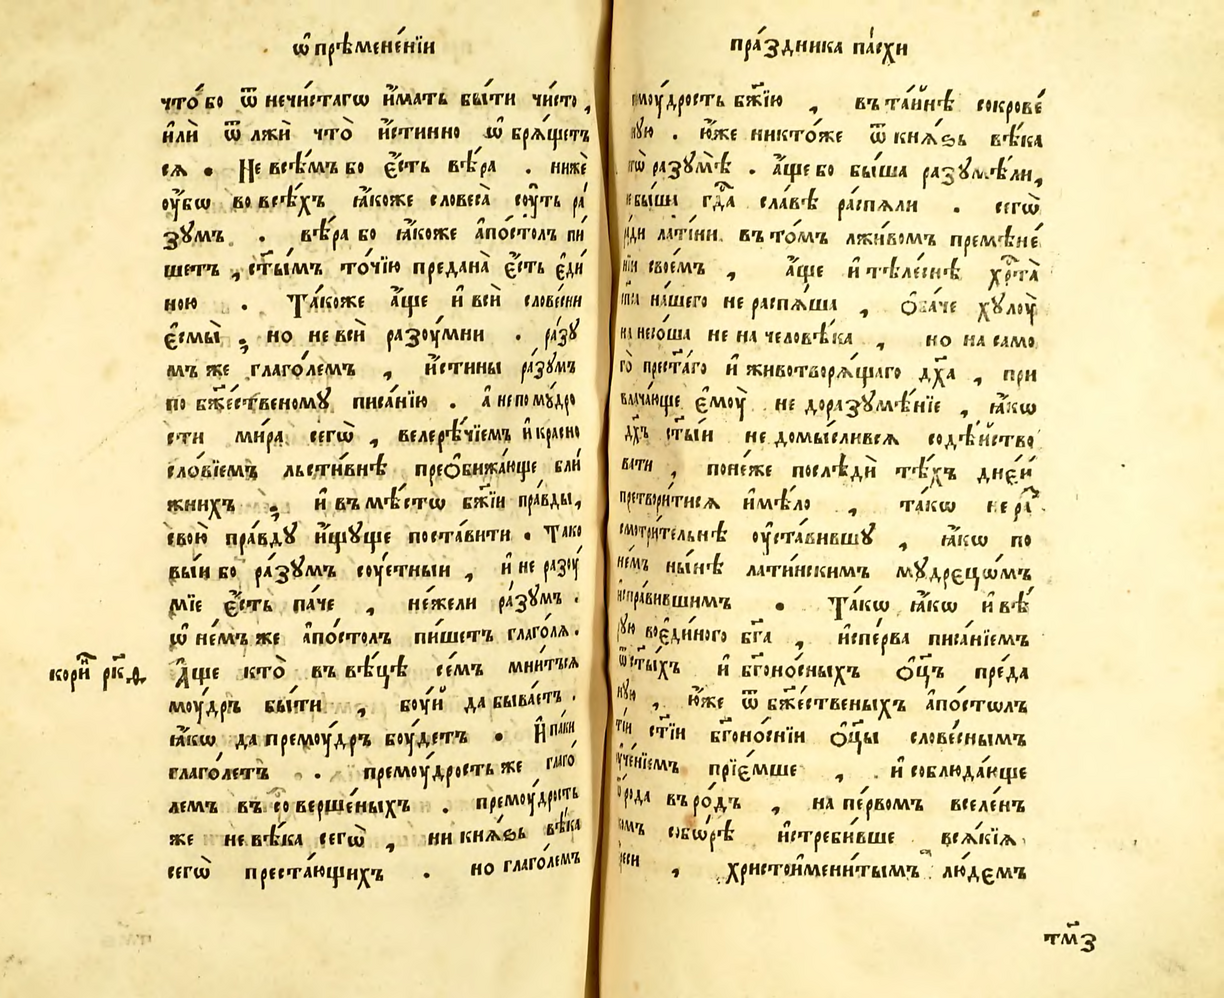 ѿ премене́нїи
что́ бо ѿ нечи́стагѡ и҆́мать бы́ти чи́сто ,
и҆лѝ ѿ лжѝ что̀ и҆́стинно ѡ҆брѧ́щетъ
сѧ . Не всѣ́мъ бо є҆́сть вѣ́ра . нижѐ
оу҆́бѡ во всѣ́хъ ꙗ҆́коже словеса̀ соу́ть ра́
зꙋмъ . вѣ́ра бо ꙗ҆́коже а҆по́столъ пи́
шетъ , ст҃ы́мъ то́чїю предана̀ є҆́сть є҆ди́
ною . Та́коже а҆́ще и҆ всѝ слове́сни
є҆смы̀ , но не всѝ разоу́мни . ра́зꙋ
мъ же глаго́лемъ , и҆́стины ра́зꙋмъ
по бж҃е́ственомꙋ писа́нїю . а҆ не по мꙋ́дро
сти ми́ра сегѡ̀ , велерѣ́чїемъ и҆ красно
сло́вїемъ льсти́внѣ преѻби́жающе бли́
жнихъ , и҆ въ мѣ́стѡ бж҃їи пра́вды,
свою̀ пра́вдꙋ и҆́щꙋще поста́вити . Тако
вы́и бо ра́зꙋмъ соу́етныи , и҆ не разоу́
мїе є҆́сть па́че , не́жели ра́зꙋмъ .
ѡ҆ не́мъ же а҆по́столъ пи́шетъ глаго́лѧ .
кори҆н рк҃д
А҆́ще кто̀ въ вѣ́цѣ се́мъ мни́тьсѧ
моу́дръ бы́ти , боу́й да быва́етъ .
ꙗ҆́кѡ да премоу́дръ боу́детъ . И҆ па́ки
глаго́летъ . премоу́дрость же глаго́
лемъ въ соверше́ныхъ . премоу́дрость
же не вѣ́ка сегѡ̀ , ни кнѧ́ѕь вѣ́ка
сегѡ̀ преста́ющихъ . но глаго́лемъ
пра́здника па́схи
моу́дрость бж҃їю , въ та́йнѣ сокрове́
ю҆́же никто́же ѿ кнѧ́ѕь вѣ́ка
разꙋмѣ̀ . а҆́ще бо бы́ша разꙋмѣ́ли,
бы́ши гдⷭ҇а сла́вѣ распѧ́ли . сегѡ̀
лати́ни въ то́мъ лжи́вомъ премѣне́
свое́мъ , а҆́ще и҆ тѣле́снѣ хрⷭ҇та̀
на́шего не распѧ́ша , ѻ҆ба́че хꙋлоу̀
несо́ша не на человѣ́ка , но на само
го̀ прест҃а́го и҆ животворѧ́щаго дх҃а , при
є҆моу̀ не доразꙋмѣ́нїе , ꙗ҆́кѡ
дх҃ъ ст҃ы́и не домы́сливсѧ содѣ́йство
вати , поне́же послѣдѝ тѣ́хъ дне́й
претвори́тисѧ и҆мѣ́ло , та́кѡ не ра́с
смотри́тельнѣ оу҆ста́вившꙋ , ꙗ҆́кѡ по
не́мъ ны́нѣ лати́нскимъ мꙋдрецѡ́мъ
испра́вившимъ . Та́кѡ ꙗ҆́кѡ и҆ вѣ́
воє҆ди́ного бг҃а , и҆спе́рва писа́нїемъ
ѿ ст҃ы́хъ и҆ бг҃оно́сныхъ ѻ҆ц҃ъ преда
ю҆́же ѿ бж҃е́ственыхъ а҆по́столъ
ст҃їи бг҃оно́снїи ѻ҆ц҃ы слове́снымъ
оуче́нїемъ прїе́мше , и҆ соблюда́юще
рода въ ро́дъ , на пе́рвомъ вселе́н
собо́рѣ и҆стреби́вше всѧ́кїѧ
ереси , христоимени́тымъ лю́демъ
тм҃з